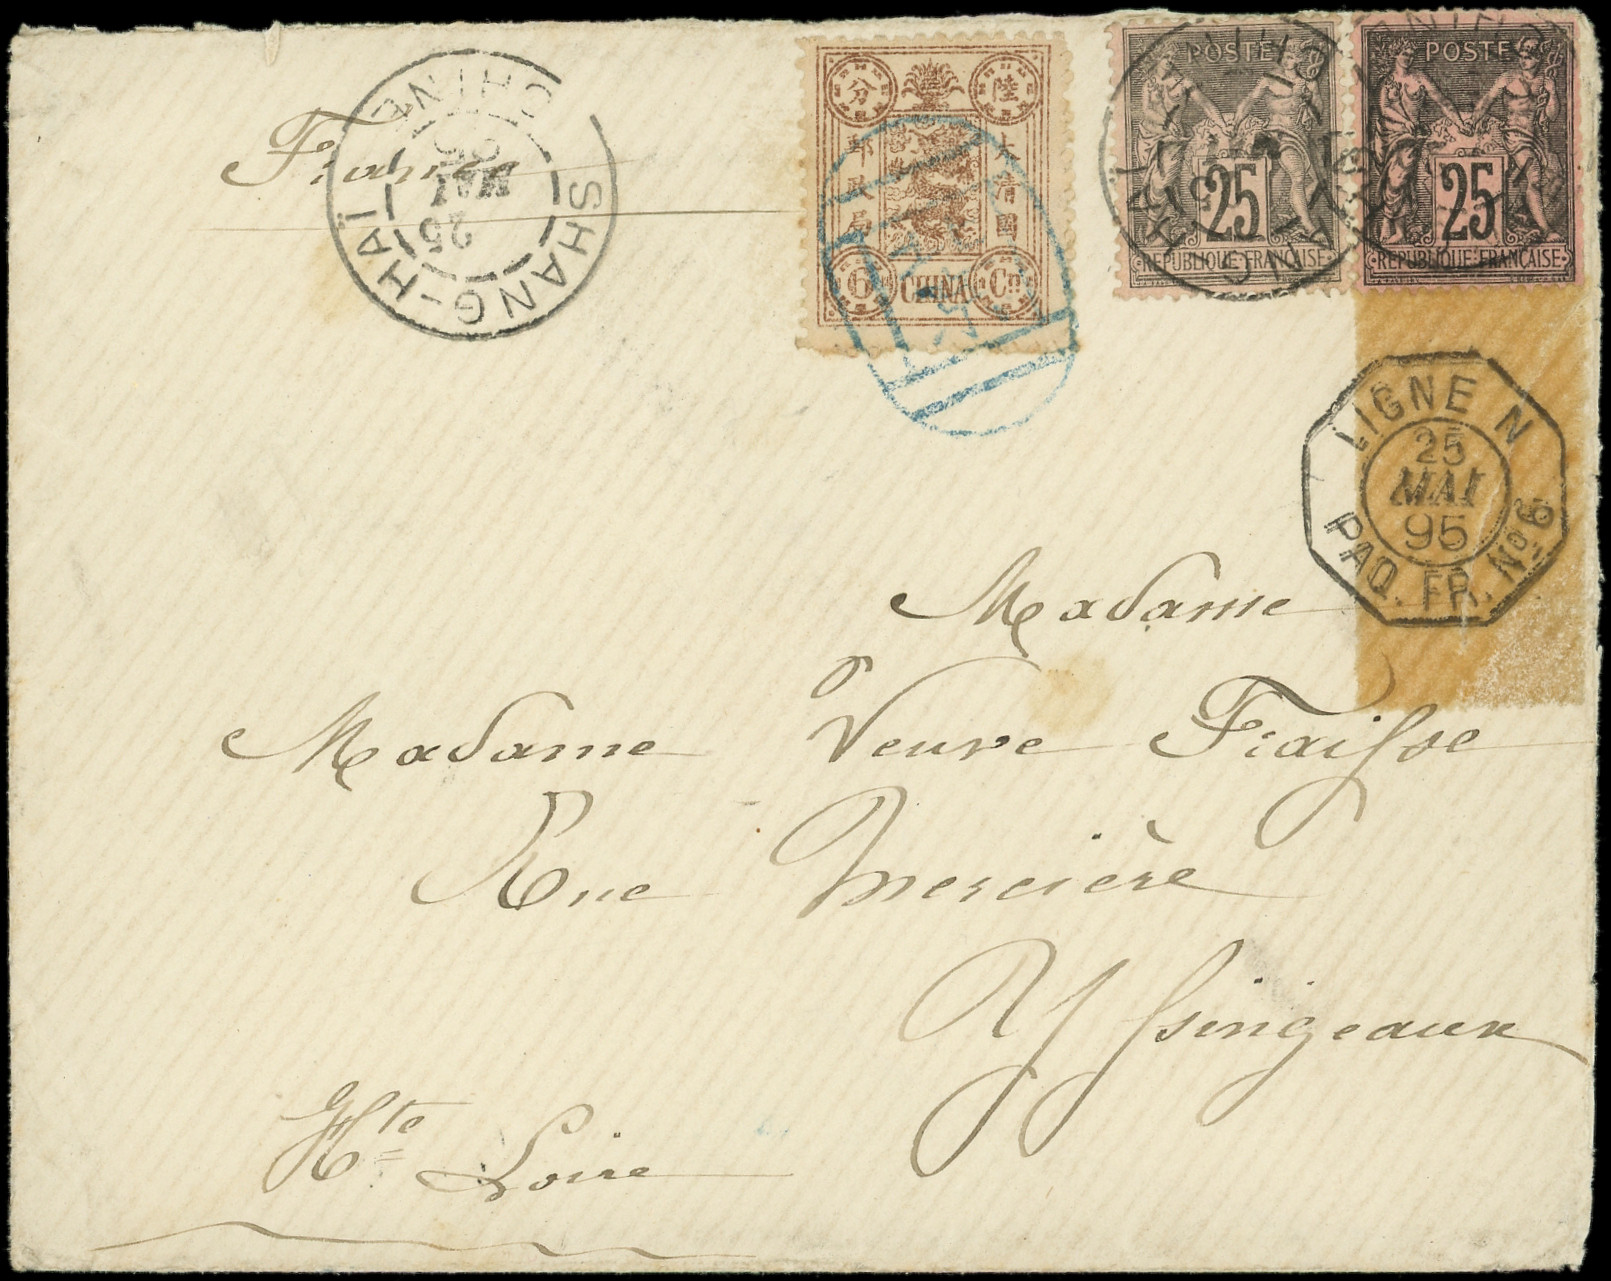 France
SHANG-HAÏ
CHINE
25
MAI
95
分 陸
郵政局
大清國
6 CHINA Cn
POSTE
25
REPUBLIQUE FRANÇAISE
POSTE
25
REPUBLIQUE FRANÇAISE
LIGNE N
25
MAI
95
PAQ. FR. No 6
Madame
Madame Veuve Fraisse
Rue Mercière
Yssingeaux
Hte Loire